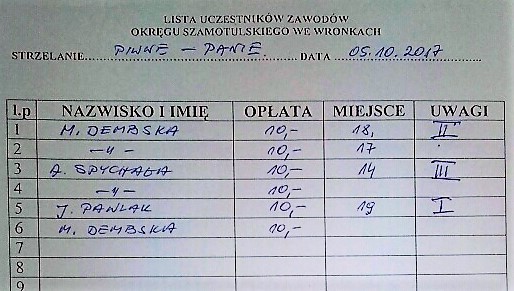 LISTA UCZESTNIKÓW ZAWODÓW
OKRĘGU SZAMOTULSKIEGO WE WRONKACH
STRZELANIE PIWNE – PANIE DATA 05.10.2017
l.p NAZWISKO I IMIĘ OPŁATA MIEJSCE UWAGI
1 M. DEMBSKA 10,- 18, II
2 –„– 10,- 17
3 A. SPYCHAŁA 10,- 14 III
4 –„– 10,-
5 J. PAWLAK 10,- 19 I
6 M. DEMBSKA 10,-
7
8
9